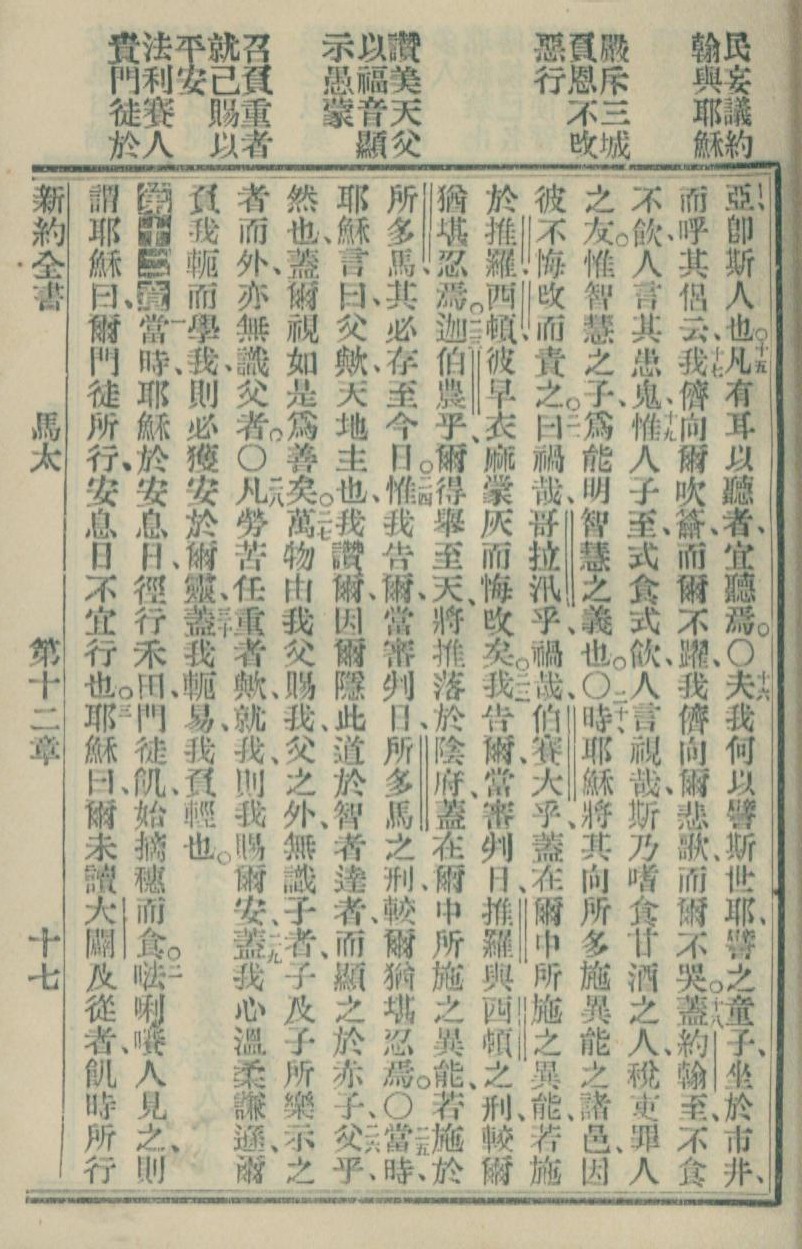 民妄議約
翰與耶穌
嚴斥三城
負恩不改
惡行
讚美天父
以福音顯
示愚蒙
召負重者
就己賜以
平安
法利賽人
責門徒於
亞卽斯人也。十五凡有耳以聽者、宜聽焉。〇十六夫我何以譬斯世耶、譬之童子、坐於市井、
而呼其侶云、十七我儕向爾吹籥、而爾不躍、我儕向爾悲歌、而爾不哭。十八蓋約翰至、不食
不飲、人言其患鬼、十九惟人子至、式食式飲、人言視哉、斯乃嗜食甘酒之人、稅吏罪人
之友。惟智慧之子、爲能明智慧之義也。〇二十時、耶穌將其向所多施異能之諸邑、因
彼不悔改而責之。二一曰、禍哉、哥拉汛乎、禍哉、伯賽大乎、蓋在爾中所施之異能、若施
於推羅西頓、彼早衣麻蒙灰而悔改矣。二二我告爾、當審判日、推羅與西頓之刑、較爾
猶堪忍焉。二三迦伯農乎、爾得舉至天、將推落於陰府、蓋在爾中所施之異能、若施於
所多馬、其必存至今日。二四惟我告爾、當審判日、所多馬之刑、較爾猶堪忍焉。〇二五當時、
耶穌言曰、父歟、天地主也、我讚爾、因爾隱此道於智者達者、而顯之於赤子、二六父乎、
然也、蓋爾視如是爲善矣。二七萬物由我父賜我、父之外、無識子者、子及子所樂示之
者而外、亦無識父者。〇二八凡勞苦任重者歟、就我、則我賜爾安、二九蓋我心溫柔謙遜、爾
負我軛而學我、則必獲安於爾靈、三十蓋我軛易、我負輕也。
第十二章一當時、耶穌於安息日、徑行禾田、門徒飢、始摘穗而食。二𠵽唎嚽人見之、則
謂耶穌曰、爾門徒所行、安息日不宜行也。三耶穌曰、爾未讀大闢及從者、飢時所行
新約全書 馬太 第十二章 十七